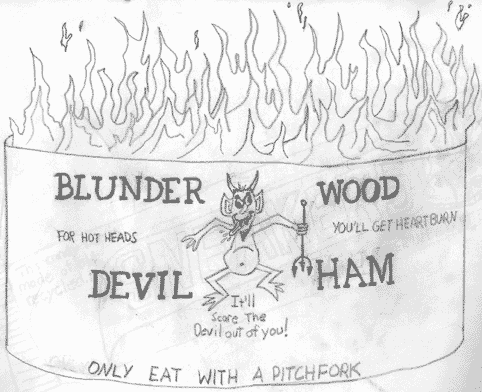 BLUNDER WOOD
FOR HOT HEADS
YOU'LL GET HEARTBURN
DEVIL HAM
It'll
Scare The
Devil out of you!
ONLY EAT WITH A PITCHFORK